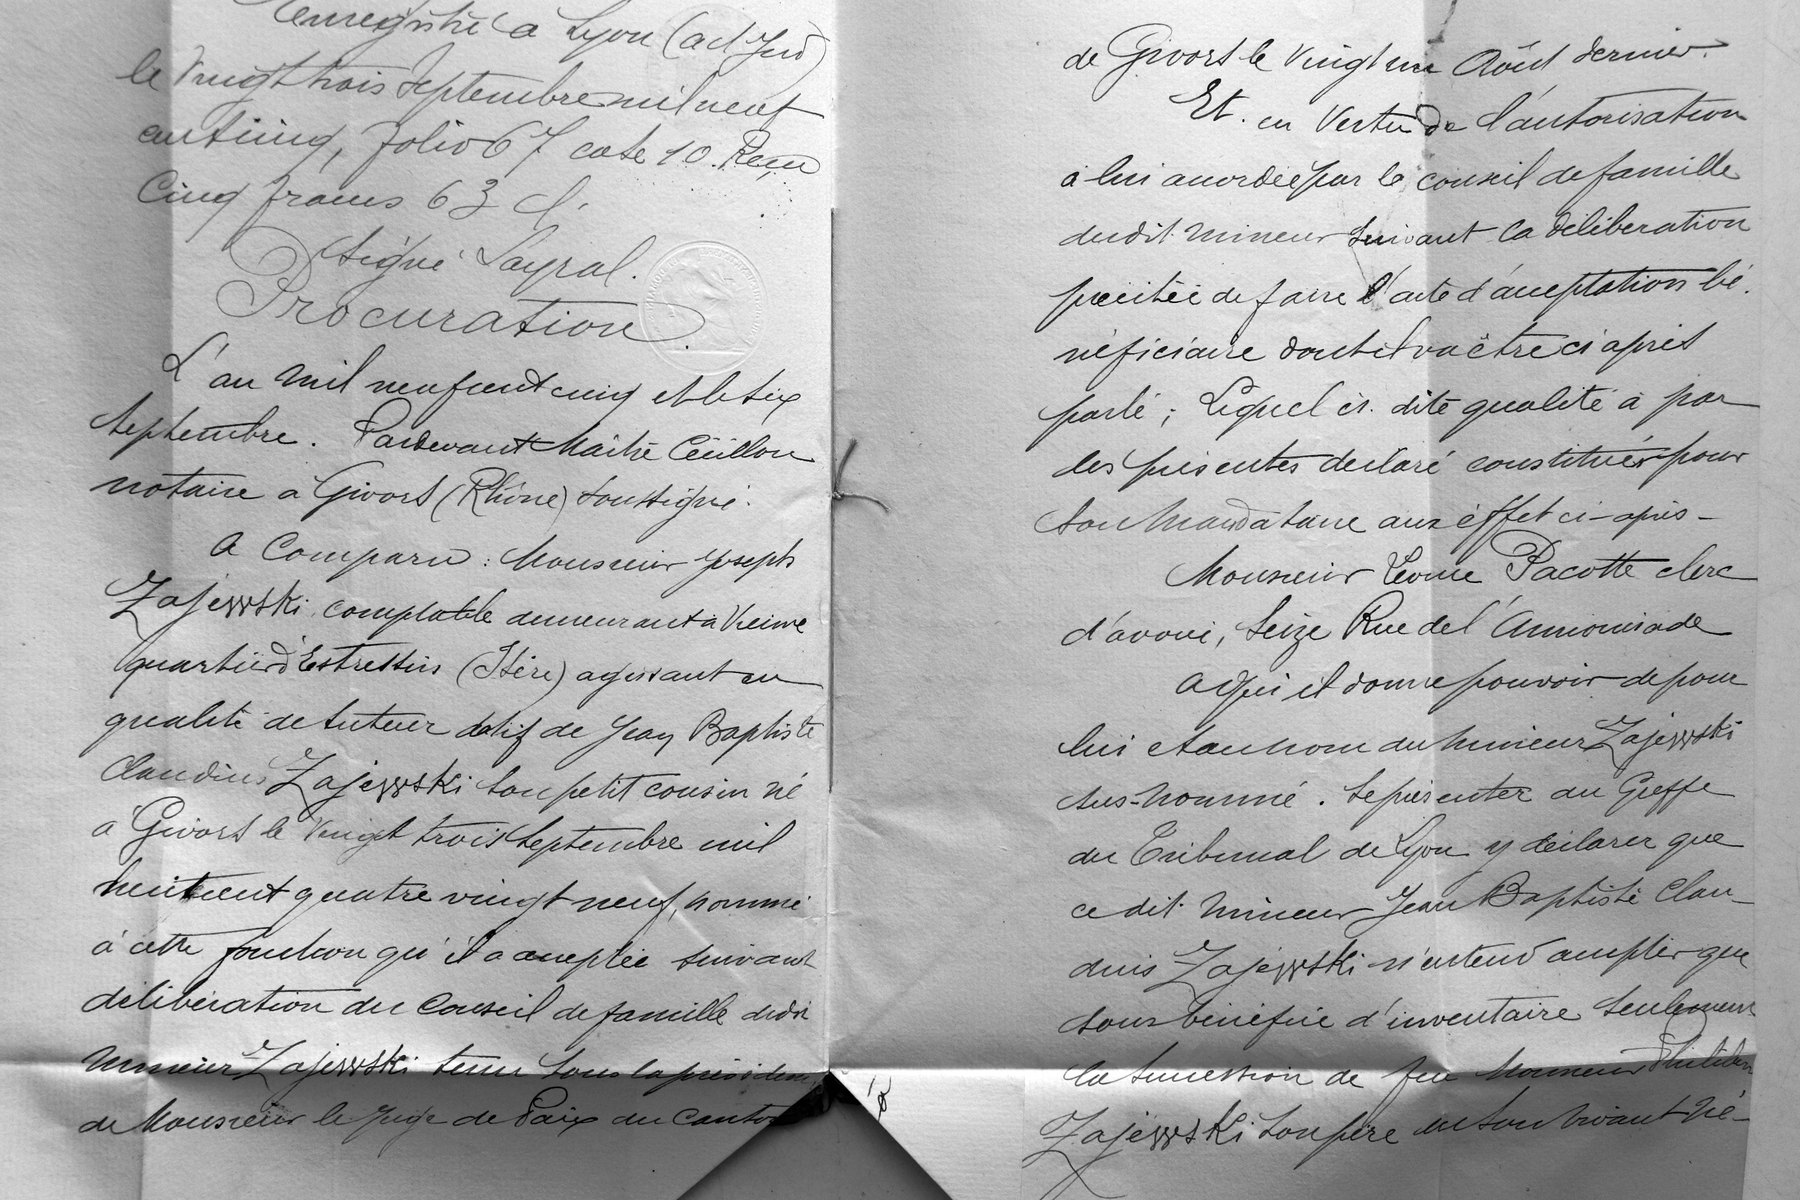 Enregistré à Lyon (act Jud)
le Vingt trois Septembre mil neuf
cent cinq, folio 67 case 10. Reçu
Cinq francs 63 c.
Signé Layral.
Procuration.
L'an mil neuf cent cinq et le six
Septembre. Pardevant Maître Cuillon
notaire à Givors (Rhône) soussigné.
A Comparu : Monsieur Joseph
Zajewski comptable demeurant à Vienne
quartier d'Estressin (Isère) agissant en
qualité de tuteur datif de Jean Baptiste
Claudius Zajewski son petit cousin né
à Givors le Vingt trois Septembre mil
huit cent quatre vingt neuf, nommé
à cette fonction qu'il a acceptée suivant
délibération du Conseil de famille dudit
mineur Zajewski tenu sous la présidence
de Monsieur le Juge de Paix du canton
de Givors le Vingt un Août dernier.
Et. en Vertu de l'autorisation
à lui accordée par le conseil de famille
dudit mineur suivant la délibération
précitée de faire l'acte d'acceptation bé.
néficiaire dont il va être ci après
parlé ; Lequel ès. dite qualité a par
les présentes déclaré constituer pour
son Mandataire aux effet ci-après -
Monsieur Léonce Pacotte clerc
d'avoué, Seize Rue de l'Annonciade
A qui il donne pouvoir de pour
lui et au nom du mineur Zajewski
sus-nommé. Se présenter au Greffe
du Tribunal de Lyon y déclarer que
ce dit mineur Jean Baptiste Clau-
dius Zajewski n'entend accepter que
sous bénéfice d'inventaire Seulement
la Succession de feu Monsieur Philibert
Zajewski son père en son vivant né-